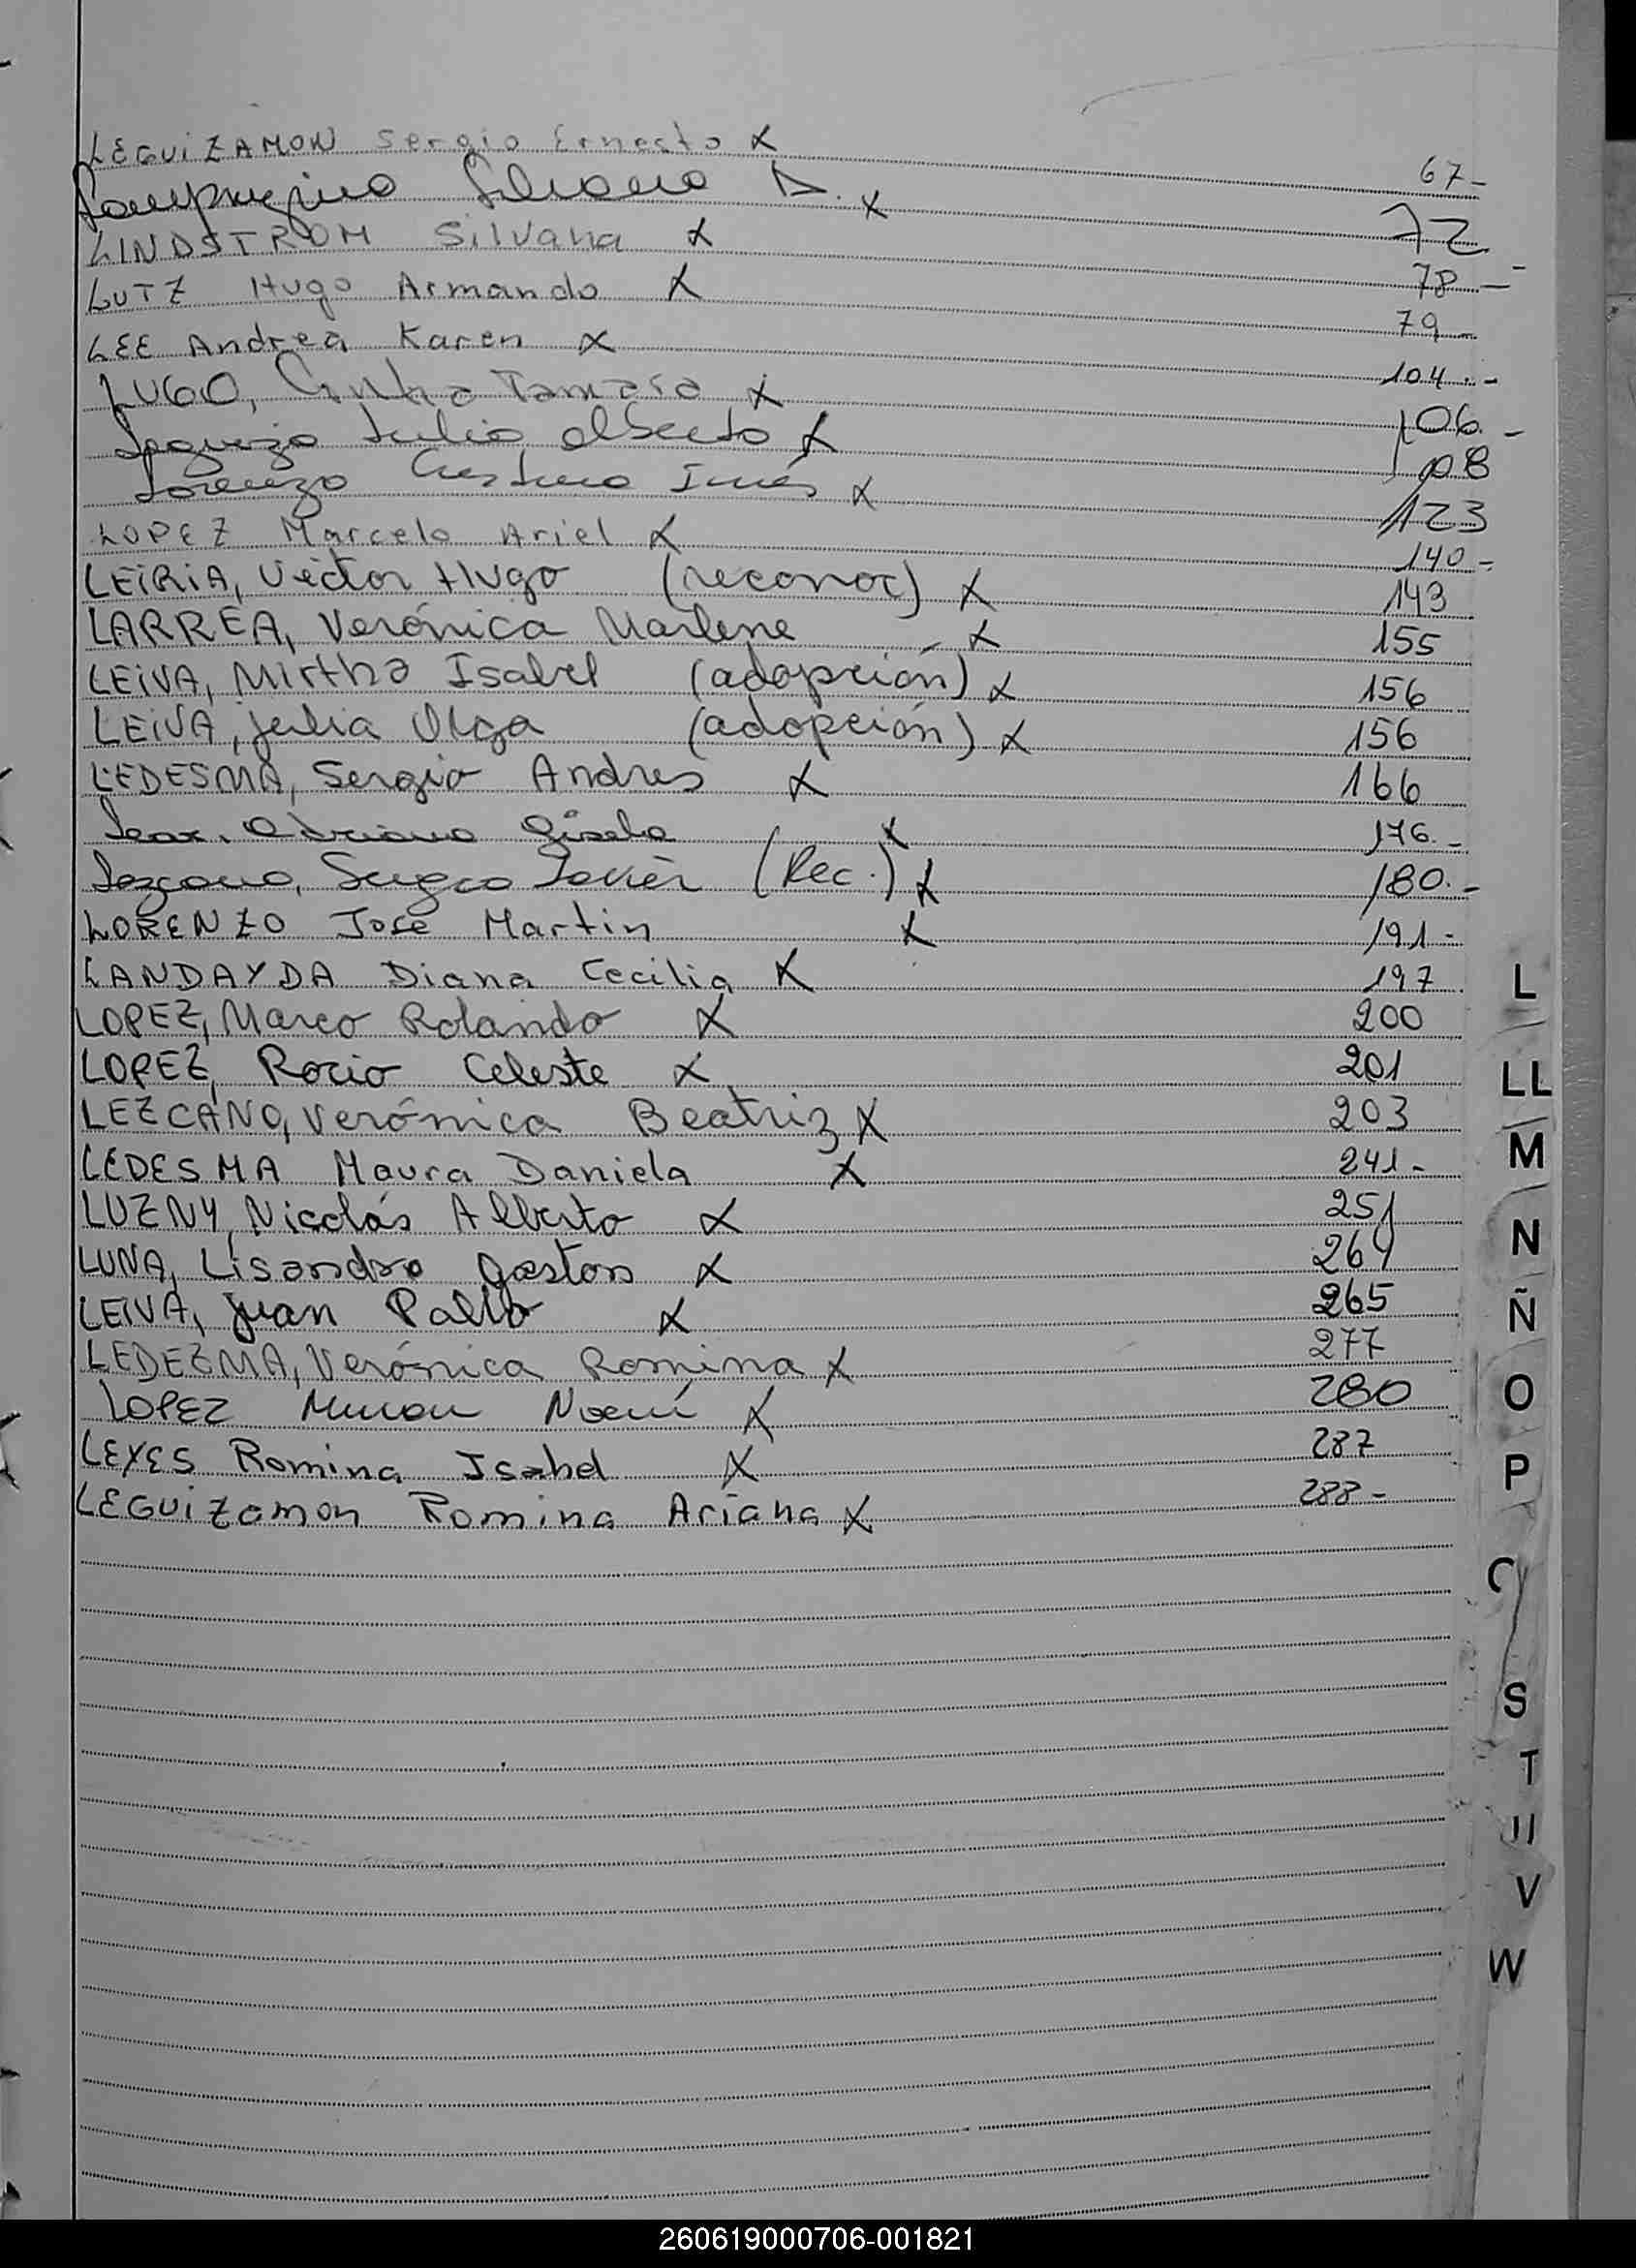 LEGUIZAMON Sergio Ernesto X 67-
Silvana D. X 72
LINDSTROM Silvana X 78-
LUTZ Hugo Armando X 79
LEE Andrea Karen X 104.-
LUGO, Cinthia Tamara X 106.-
Julio Alberto X 108
Lorenzo Cristina Inés X 123
LOPEZ Marcelo Ariel X 140-
LEIRIA, Victor Hugo (reconoc) X 143
LARREA, Verónica Marlene X 155
LEIVA, Mirtha Isabel (adopción) X 156
LEIVA, Julia Olga (adopción) X 156
LEDESMA, Sergio Andres X 166
Adriana Gisela X 176.-
Lezcano, Sergio Javier (Rec.) X 180.-
LORENZO José Martin X 191-
LANDAYDA Diana Cecilia X 197
LOPEZ, Marco Rolando X 200
LOPEZ, Rocio Celeste X 201
LEZCANO, Verónica Beatriz X 203
LEDESMA Maura Daniela X 241-
LUZNY, Nicolás Alberto X 251
LUNA, Lisandro Gaston X 264
LEIVA, Juan Pablo X 265
LEDEZMA, Verónica Romina X 277
LOPEZ Miriam Noemí X 280
LEYES Romina Isabel X 287
LEGUIZAMON Romina Ariana X 288-
L
LL
M
N
Ñ
O
P
S
T
U
V
W
260619000706-001821